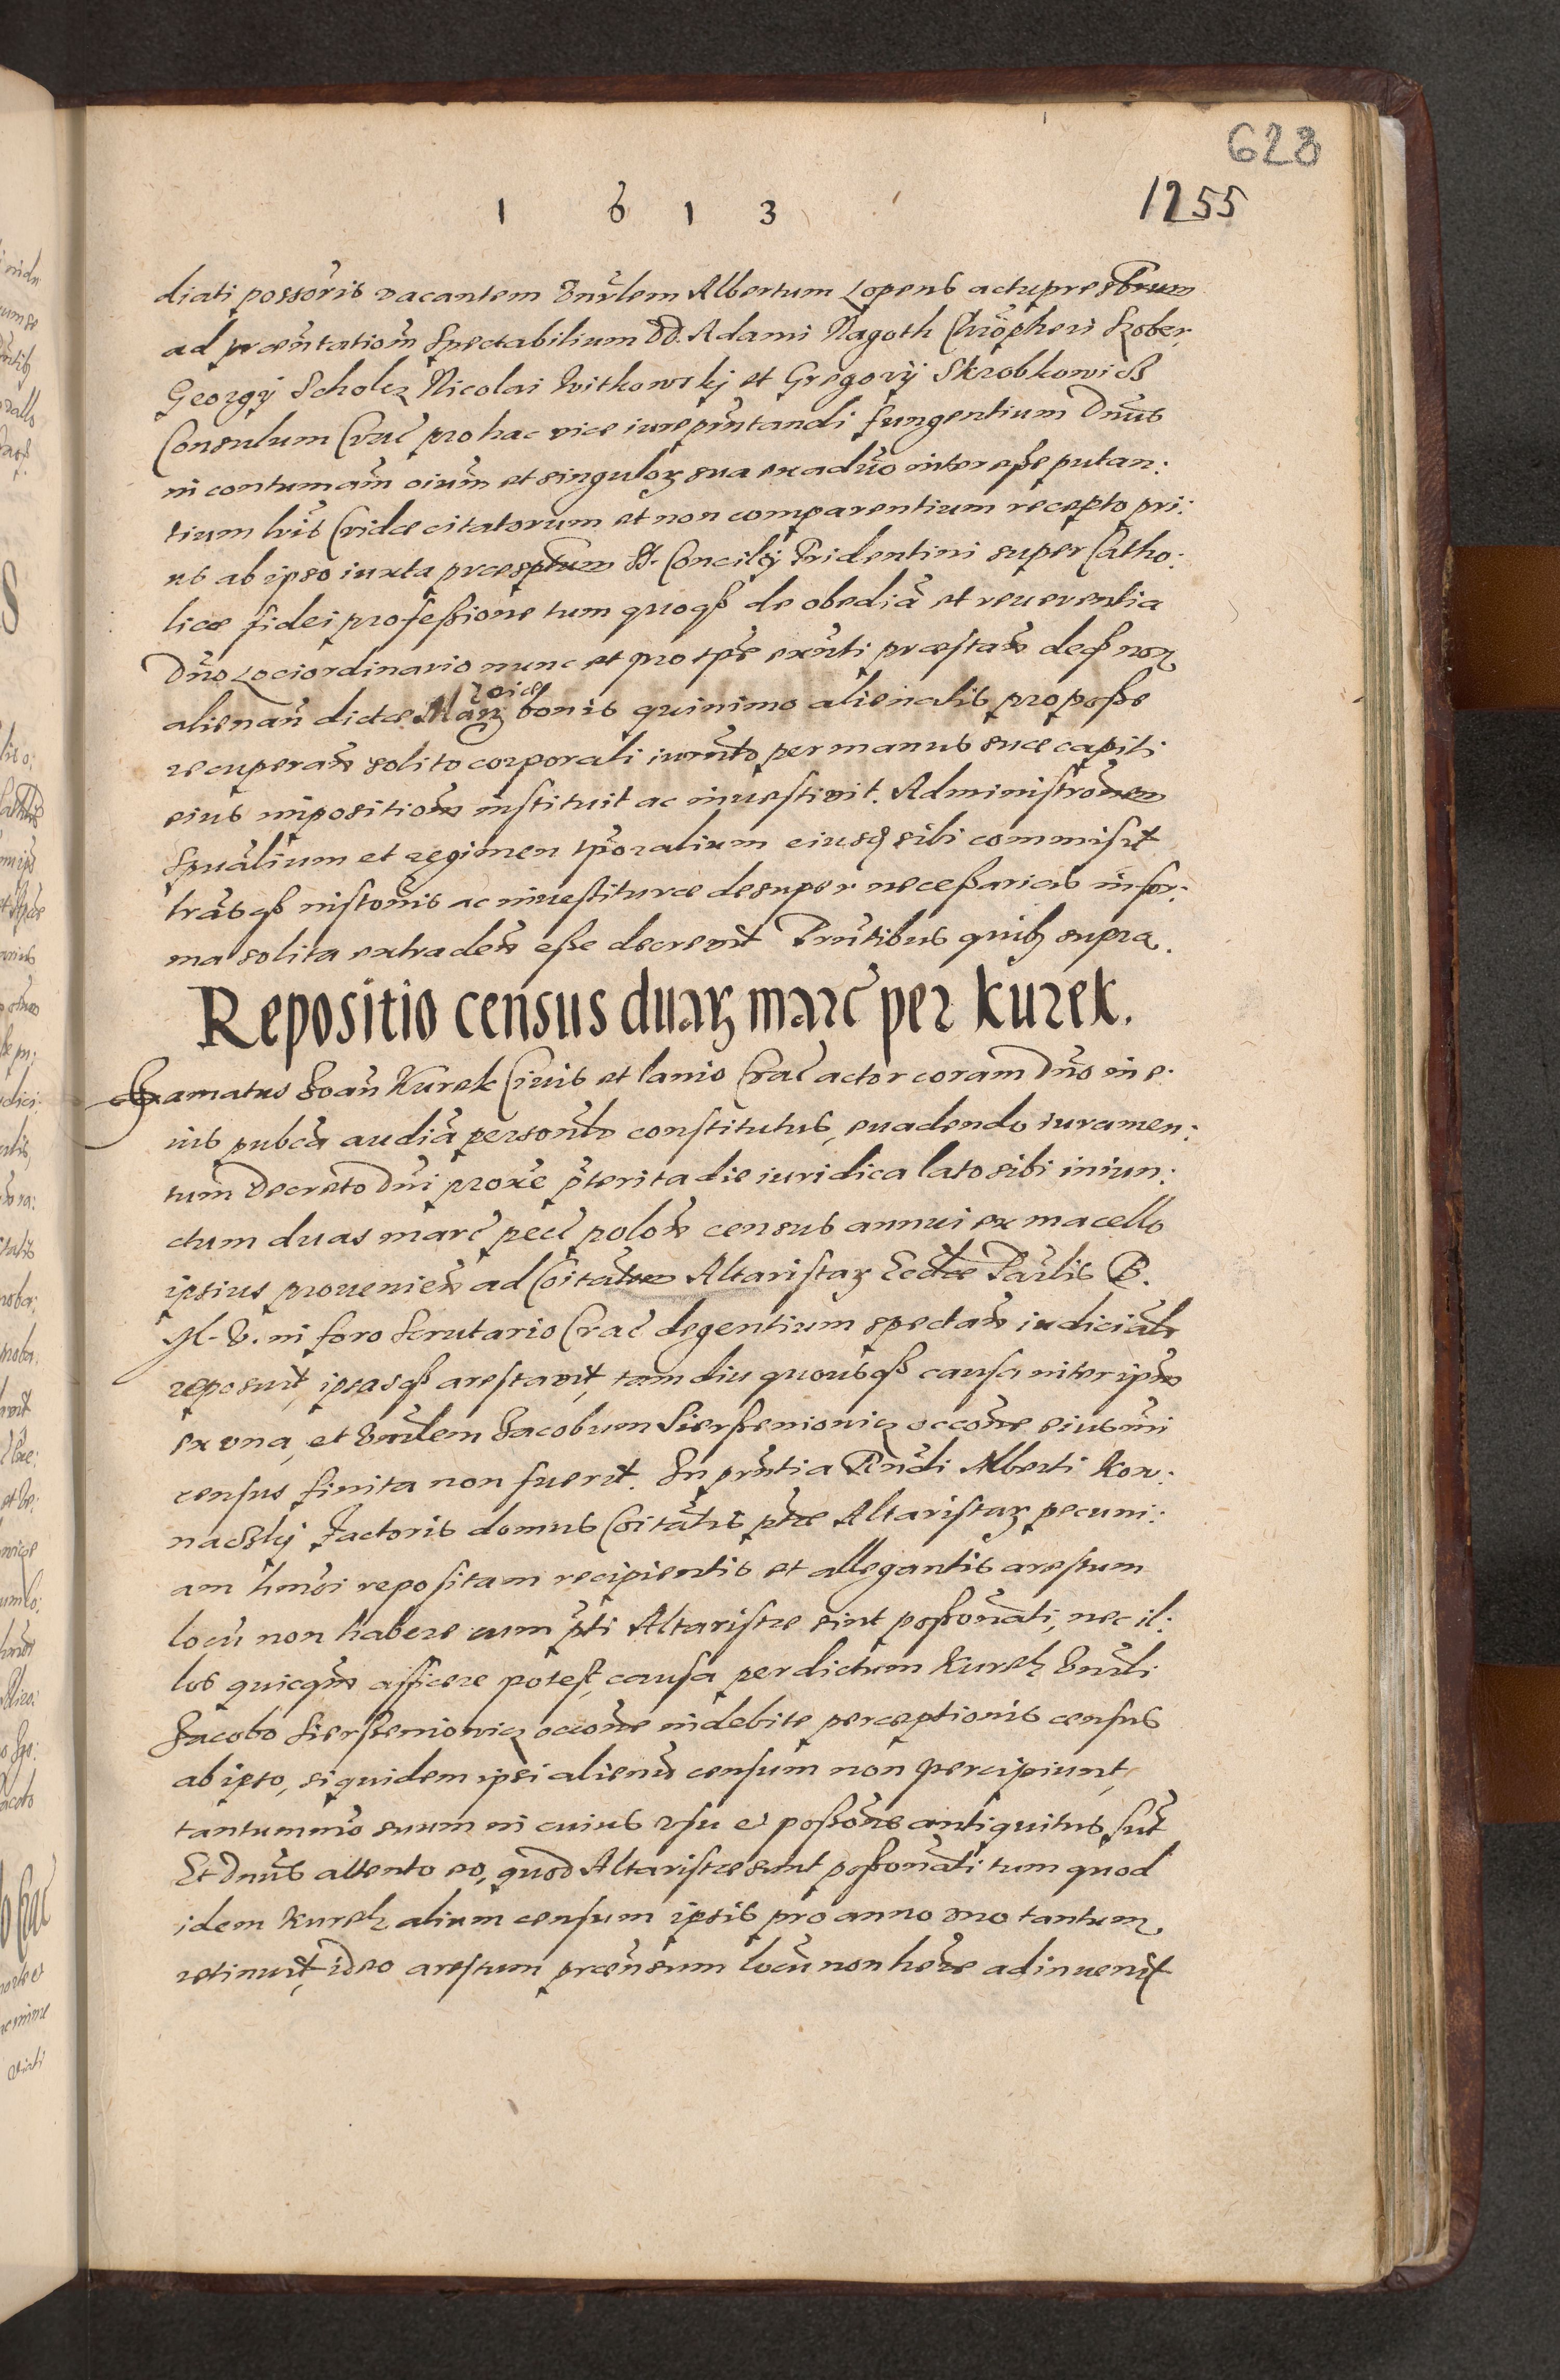 628
1255
1 6 1 3
diati possoris vacantem Vnrlem Albertum Lopens actu presbrum
ad præntationem Spectabilium DD. Adami Nagoth Chröpheri Szober,
Georgÿ Scholcz Nicolai Witkowskj et Gregorÿ Skrobkowicß
Consulum Crac pro hac vice iure prntandi fungentium Dnus
in contumam oium et singulorum sua ex aduo interesse putan:
tium lris Cridæ citatorum et non comparentium recepto pri:
us ab ipso iuxta præsptum S. Concilÿ Tridentini super Catho:
licæ fidei professione tum quoqß de obedia et reuerentia
Dno Loci ordinario nunc et pro tpre exnti præstan deqß non
alienan dictæ bonis quinimo alienatis pro posse
recuperan solito corporali iurnto per manus suæ capiti
eius impositionem instituit ac inuestiuit. Administronem
Spualium et regimen tporalium eiusq sibi commisit
lrasqß instonis ac inuestituræ desuper necessarias in for:
ma solita extraden esse decreuit Prntibus quibus supra.
Repositio census duarum marc per Kurek.
Famatus Joan Kurek Ciuis et lanio Crac actor coram Dno in e:
ius pubca audia personlr constitutus, euadendo iuramen:
tum Decreto Dni proxe prterita die iuridica lato sibi iniun:
ctum duas marc pec polon census annui ex macello
ipsius prouenien ad Coitatem Altaristarum Ecclæ Parlis B.
M. V. in foro Scrutario Crac degentium spectan iudicialr
reposuit, ipsasqß arestauit, tam diu quousqß causa inter ipm
ex vna, et Vnrlem Jacobum Sierßeniowicz occone eiusmi
census finita non fuerit. In prntia Rndi Alberti Kor:
nacßkÿ Factoris domus Coitatis prtæ Altaristarum pecuni:
am hmoi repositam recipientis et allegantis arestum
locu non habere cum prti Altaristæ sint possonati, nec il:
los quicqm afficere potest, causa per dictum Kurek Vnrli
Jacobo Sierßeniowicz occone indebite perceptionis census
ab ipso, siquidem ipsi alienu censum non percipiunt,
tantummo suum in cuius vsu et possone antiquitus sut
Et Dnus attento eo, quod Altaristæ sunt possonati tum quod
idem Kurek alium censum ipsis pro anno vno tantum
retinuit, ideo arestum prænsum locu non here adinuenit